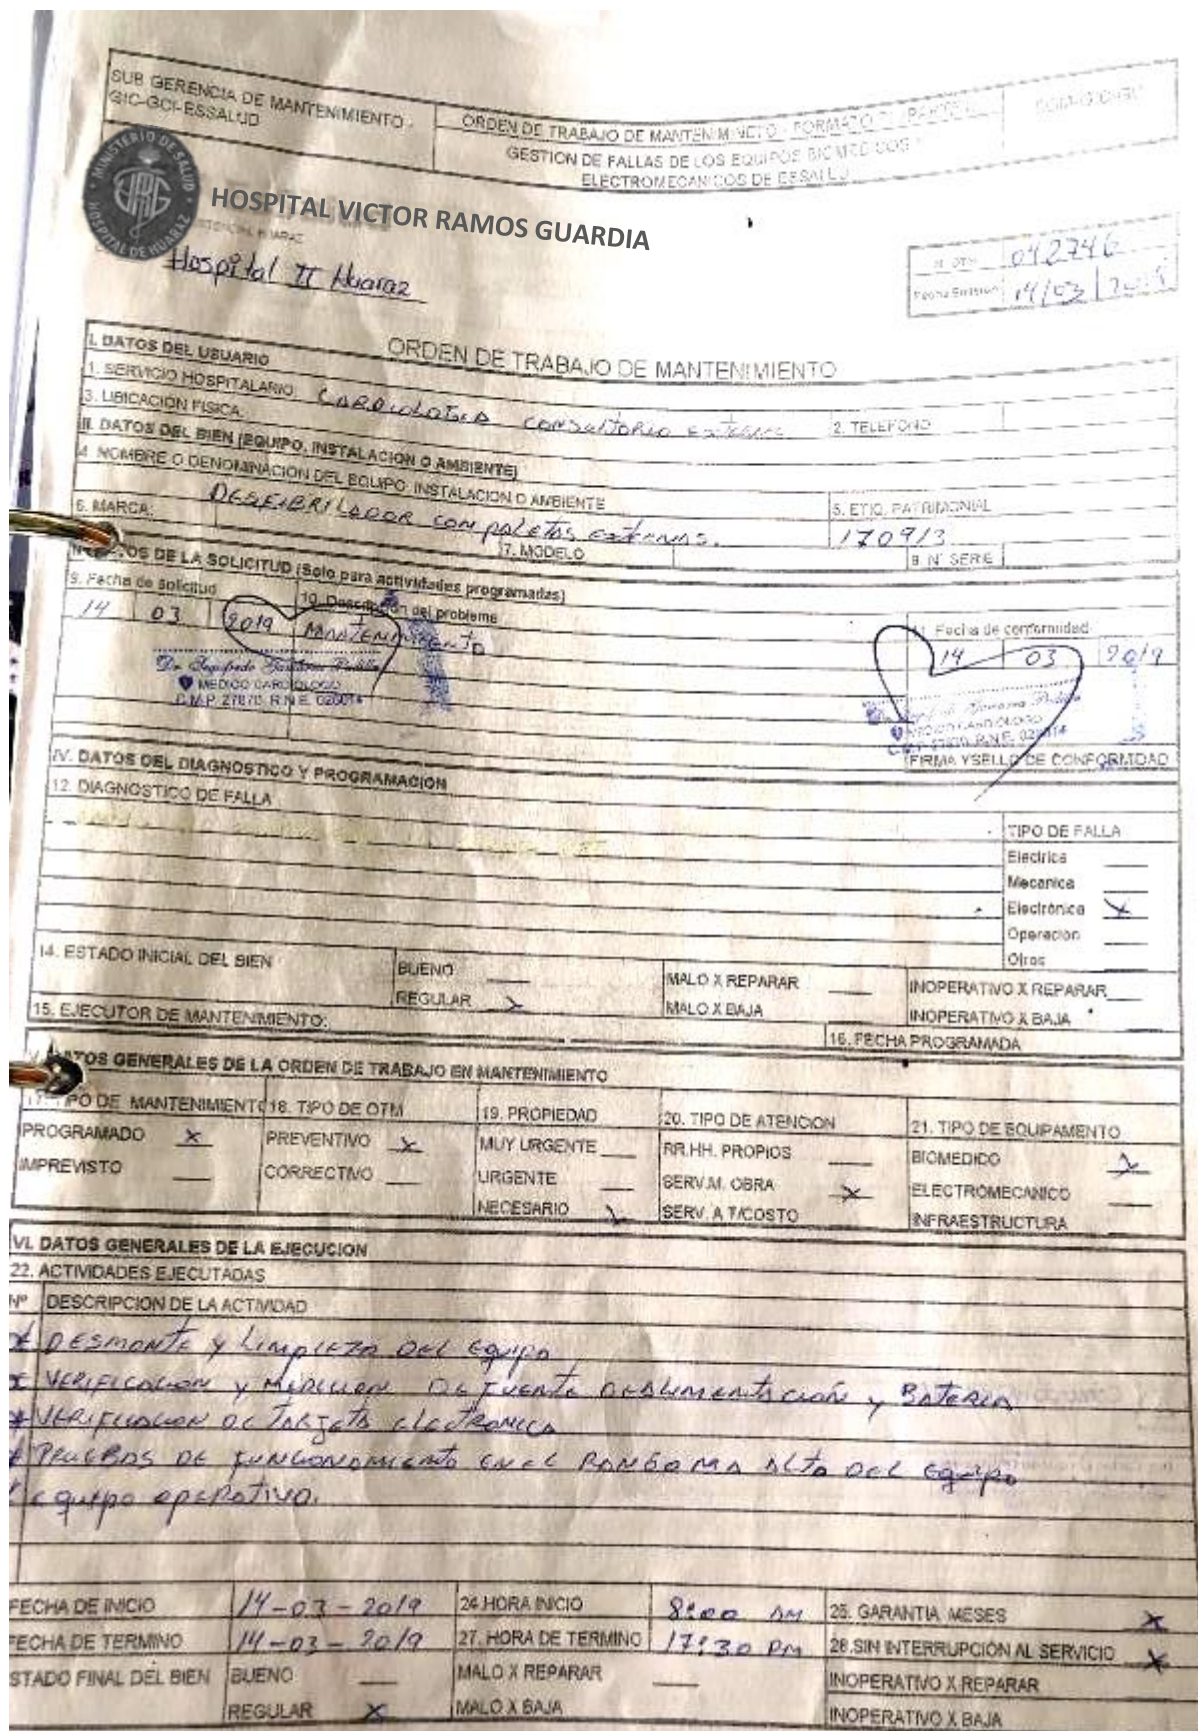 SUB GERENCIA DE MANTENIMIENTO -
GIC-GCI-ESSALUD
ORDEN DE TRABAJO DE MANTENIMINETO - FORMATO
GESTION DE FALLAS DE LOS EQUIPOS BIOMEDICOS
ELECTROMECANICOS DE ESSALUD
MINISTERIO DE SALUD
HOSPITAL DE HUARAZ
HOSPITAL VICTOR RAMOS GUARDIA
Hospital II Huaraz
042746
Fecha Emision 14/03
ORDEN DE TRABAJO DE MANTENIMIENTO
I. DATOS DEL USUARIO
1. SERVICIO HOSPITALARIO: CARDIOLOGIA CONSULTORIO EXTERNO
2. TELEFONO
3. UBICACIÓN FISICA:
II. DATOS DEL BIEN (EQUIPO, INSTALACION O AMBIENTE)
4. NOMBRE O DENOMINACION DEL EQUIPO, INSTALACION O AMBIENTE
5. ETIQ. PATRIMONIAL
DESFIBRILADOR CON PALETAS EXTERNAS.
170913
6. MARCA:
7. MODELO
8. N° SERIE
DATOS DE LA SOLICITUD (Solo para actividades programadas)
9. Fecha de solicitud
10. Descripción del problema
11. Fecha de conformidad
14 03 2019 MANTENIMIENTO
14 03 2019
MEDICO CARDIOLOGO
C.M.P. 27870 R.N.E.
MEDICO CARDIOLOGO
FIRMA Y SELLO DE CONFORMIDAD
IV. DATOS DEL DIAGNOSTICO Y PROGRAMACION
12. DIAGNOSTICO DE FALLA
TIPO DE FALLA
Electrica
Mecanica
Electrónica X
Operacion
Otros
14. ESTADO INICIAL DEL BIEN
BUENO
MALO X REPARAR
INOPERATIVO X REPARAR
REGULAR X
MALO X BAJA
INOPERATIVO X BAJA
15. EJECUTOR DE MANTENIMIENTO:
16. FECHA PROGRAMADA
DATOS GENERALES DE LA ORDEN DE TRABAJO EN MANTENIMIENTO
17. TIPO DE MANTENIMIENTO
18. TIPO DE OTM
19. PROPIEDAD
20. TIPO DE ATENCION
21. TIPO DE EQUIPAMENTO
PROGRAMADO X
PREVENTIVO X
MUY URGENTE
RR.HH. PROPIOS
BIOMEDICO X
IMPREVISTO
CORRECTIVO
URGENTE
SERV.M. OBRA X
ELECTROMECANICO
NECESARIO X
SERV. A T/COSTO
INFRAESTRUCTURA
VI. DATOS GENERALES DE LA EJECUCION
22. ACTIVIDADES EJECUTADAS
N° DESCRIPCION DE LA ACTIVIDAD
* DESMONTE y LIMPIEZA DEL Equipo
* VERIFICACION y MEDICION DE FUENTE DE ALIMENTACIÓN y BATERIA
* VERIFICACION DE TARJETA ELECTRONICA
* PRUEBAS DE FUNCIONAMIENTO EN EL RANGO MA ALTO DEL Equipo
* Equipo OPERATIVO.
FECHA DE INICIO 14-03-2019
24.HORA INICIO 8:00 AM
25. GARANTIA MESES X
FECHA DE TERMINO 14-03-2019
27. HORA DE TERMINO 17:30 PM
28.SIN INTERRUPCIÓN AL SERVICIO X
STADO FINAL DEL BIEN
BUENO
MALO X REPARAR
INOPERATIVO X REPARAR
REGULAR X
MALO X BAJA
INOPERATIVO X BAJA